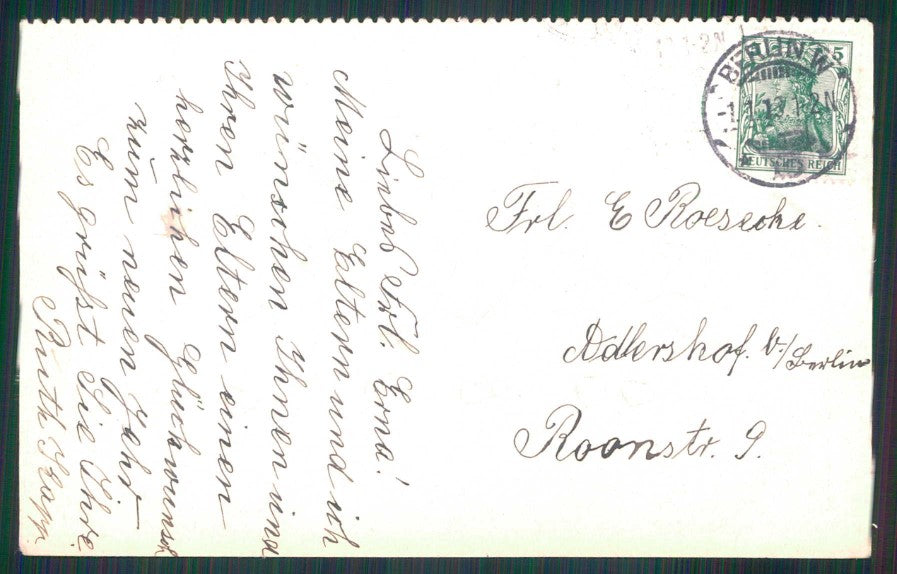 Liebes Frl. Erna!
Meine Eltern und ich
wünschen Ihnen und
Ihren Eltern einen
herzlichen Glückwunsch
zum neuen Jahr
Es grüßt Sie Ihre
Ruth
BERLIN W
1-2N
5
DEUTSCHES REICH
Frl. E Roesecke.
Adlershof. b./Berlin
Roonstr. 9.